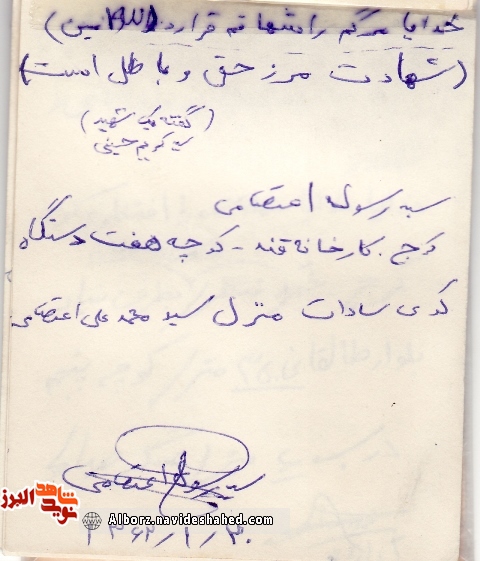 خدایا مرگم را شهادت قرار ده (آمین)
(شهادت مرز حق و باطل است)
(گفته یک شهید)
سید کریم حسینی
سید رسول اعتصامی
کرج . کارخانه قند - کوچه هفت دستگاه
کوی سادات منزل سید محمد علی اعتصامی
سید رسول اعتصامی
نوید شاهد البرز
Alborz.navideshahed.com
۱۳۶۲/۱/۳۰